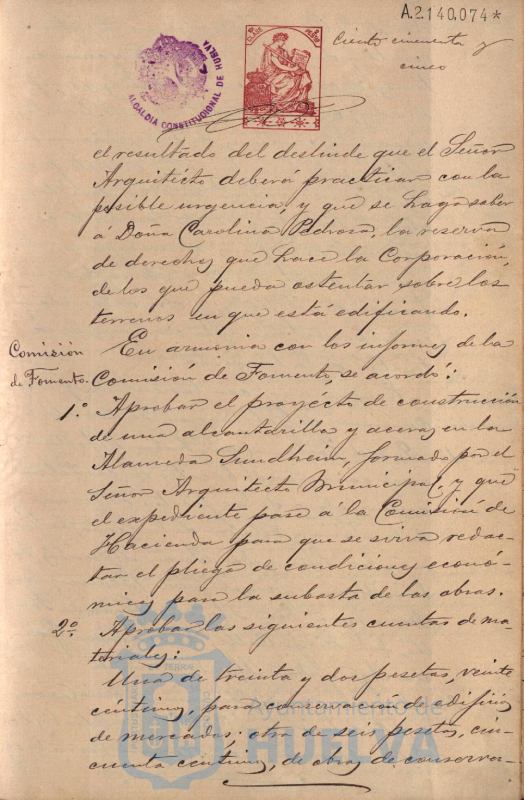 A.2.140.074*
Ciento cincuenta y
cinco
ALCALDIA CONSTITUCIONAL DE HUELVA
el resultado del deslinde que el Señor
Arquitécto deberá practicar con la
posible urgencia, y que se haga saber
á Doña Carolina Pedrosa, la reserva
de derechos que hace la Corporación,
de los que pueda ostentar sobre los
terrenos en que está edificando.
Comisión
de Fomento.
En armonia con los informes de la
Comisión de Fomento, se acordó:
1.º Aprobar el proyécto de construcción
de una alcantarilla y aceras en la
Alameda Sundheim, formado por el
Señor Arquitécto Municipal, y que
el expediente pase á la Comisión de
Hacienda para que se sirva redac-
tar el pliego de condiciones econó-
micas para la subasta de las obras.
2.º Aprobar las siguientes cuentas de ma-
teriales:
Una de treinta y dos pesetas, veinte
céntimos, para conservación de edificios
de mercados; otra de seis pesetas, cin-
cuenta céntimos, de obras de conserva-
Ayuntamiento de
HUELVA